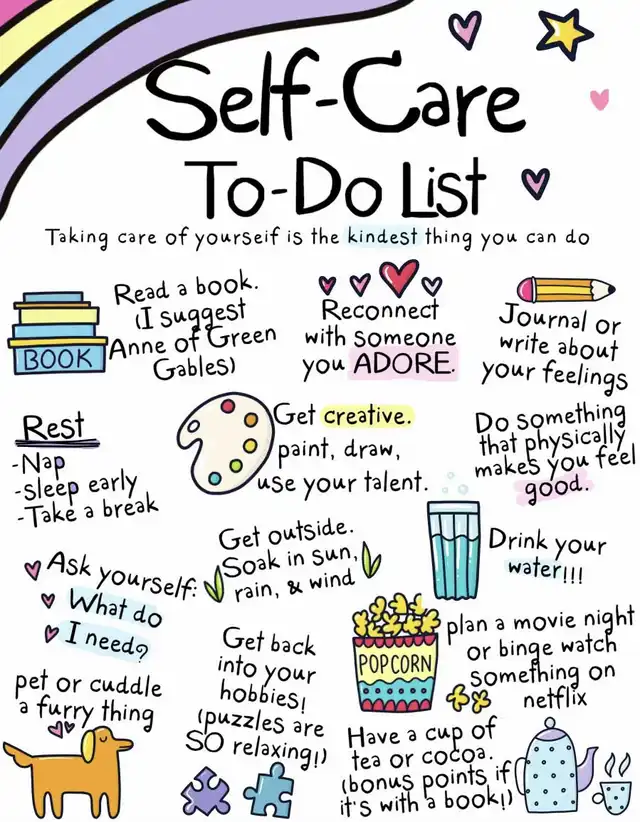 Self-Care
To-Do List
Taking care of yourseif is the kindest thing you can do
BOOK
Read a book.
(I suggest
Anne of Green
Gables)
Reconnect
with someone
you ADORE.
Journal or
write about
your feelings
Rest
-Nap
-sleep early
-Take a break
Get creative.
paint, draw,
use your talent.
Do something
that physically
makes you feel
good.
Ask yourself:
What do
I need?
Get outside.
Soak in sun,
rain, & wind
Drink your
water!!!
pet or cuddle
a furry thing
Get back
into your
hobbies!
(puzzles are
SO relaxing!)
POPCORN
plan a movie night
or binge watch
something on
netflix
Have a cup of
tea or cocoa.
(bonus points if
it's with a book!)